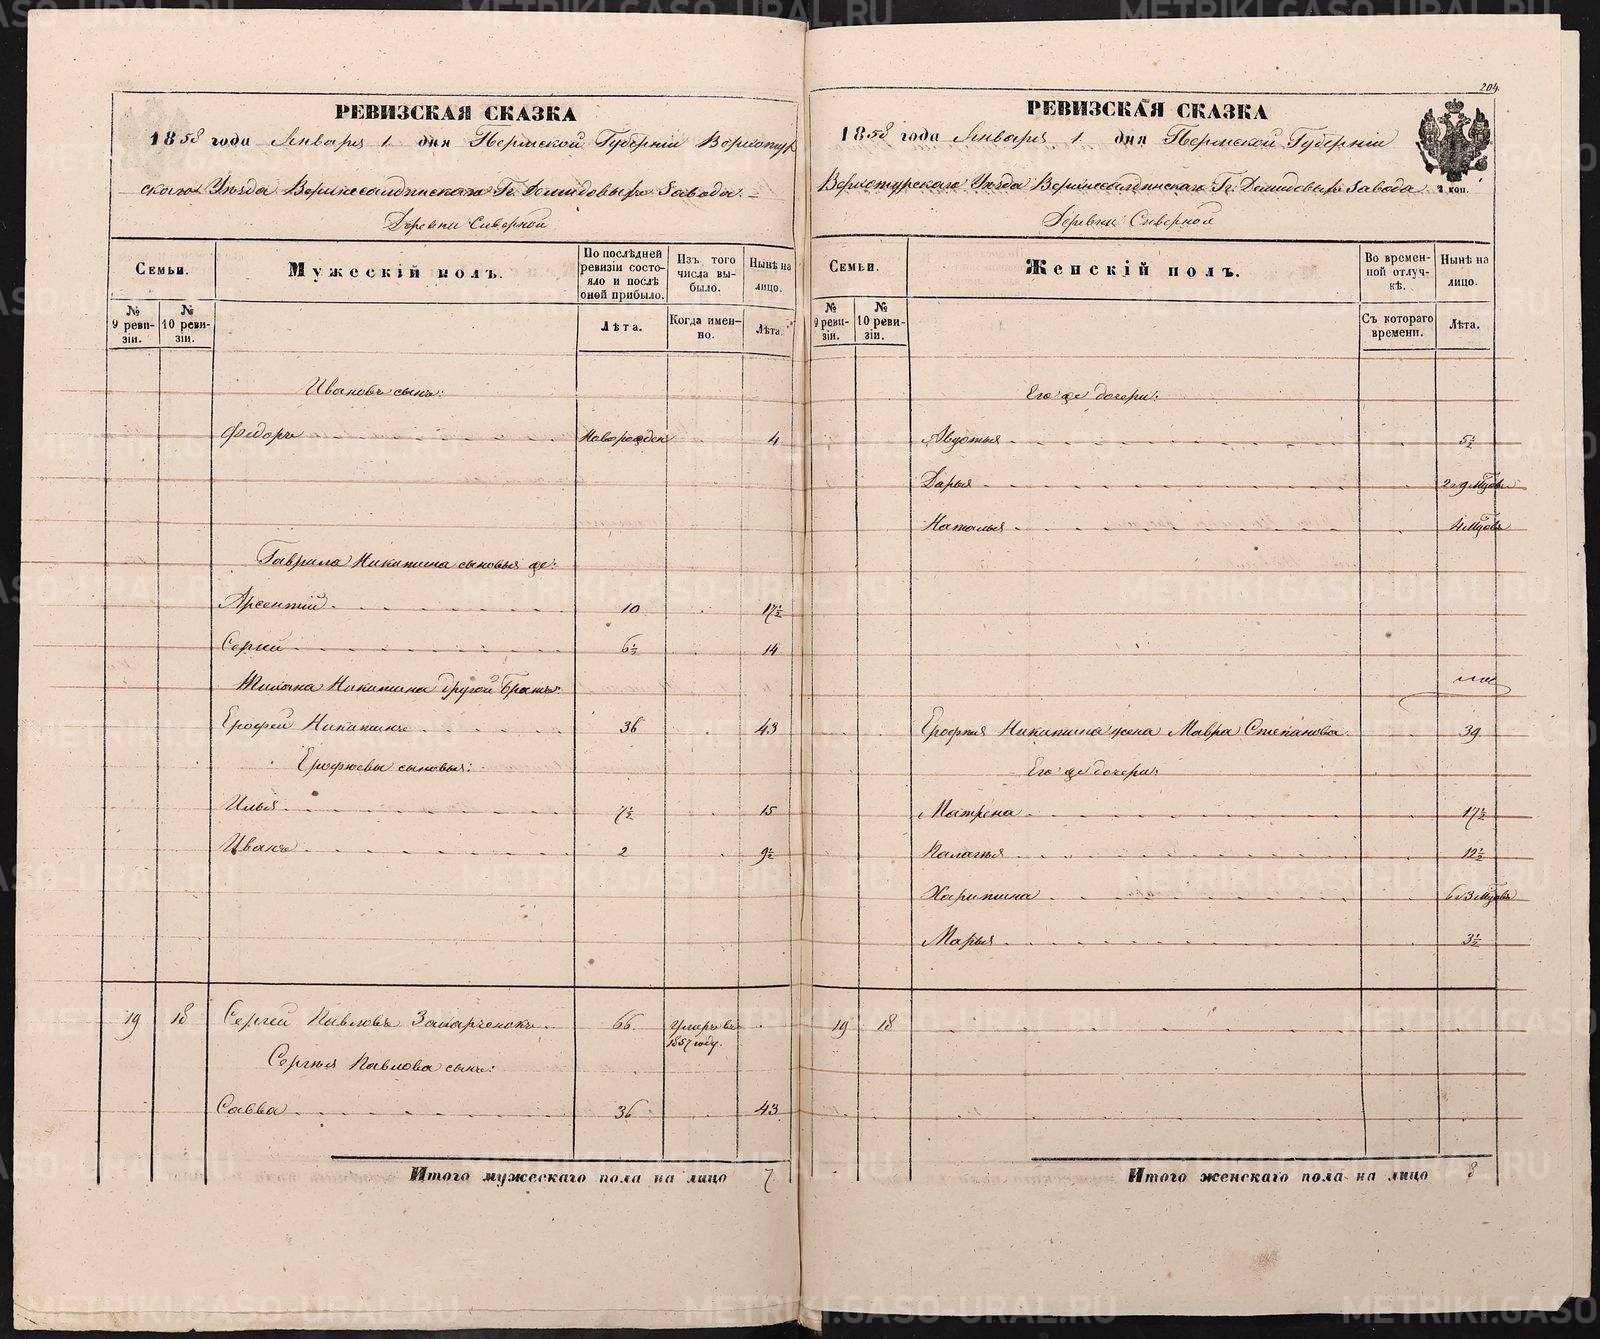 РЕВИЗСКАЯ СКАЗКА
1858 года Января 1 дня Пермской Губерніи Верхотур
скаго Уѣзда Верхнесалдинскаго Гг. Демидовыхъ Завода.
Деревни Сѣверной
Семьи.
Мужескій полъ.
По послѣдней ревизіи состояло и послѣ оной прибыло.
Изъ того числа выбыло.
Нынѣ на лицо.
№ 9 ревизіи.
№ 10 ревизіи.
Лѣта.
Когда именно.
Лѣта.
Ивановъ сынъ:
Федоръ новорожден 4
Гаврила Никитина сыновья же:
Арсентій 10 17½
Сергѣй 6½ 14
Никитина другой братъ:
Ерофей Никитинъ 36 43
Ерофеевы сыновья:
Илья 7½ 15
Иванъ 2 9½
19 18 Сергѣй Павловъ Захарченокъ 66 Умеръ въ 1857 году.
Сергѣя Павлова сынъ:
Савва 36 43
Итого мужескаго пола на лицо 7
204
РЕВИЗСКАЯ СКАЗКА
1858 года Января 1 дня Пермской Губерніи
Верхотурскаго Уѣзда Верхнесалдинскаго Гг. Демидовыхъ Завода
Деревни Сѣверной
Семьи.
Женскій полъ.
Во временной отлучкѣ.
Нынѣ на лицо.
№ 9 ревизіи.
№ 10 ревизіи.
Съ котораго времени.
Лѣта.
Его же дочери:
Авдотья 5½
Дарья 2 г 9 мцовъ
Наталья 4 мцовъ
Ерофея Никитина жена Мавра Степанова 39
Его же дочери:
Матрена 17½
Палагья 12½
Харитина 6 и 3 мцовъ
Марья 3½
19 18
Итого женскаго пола на лицо 8
METRIKI.GASO-URAL.RU